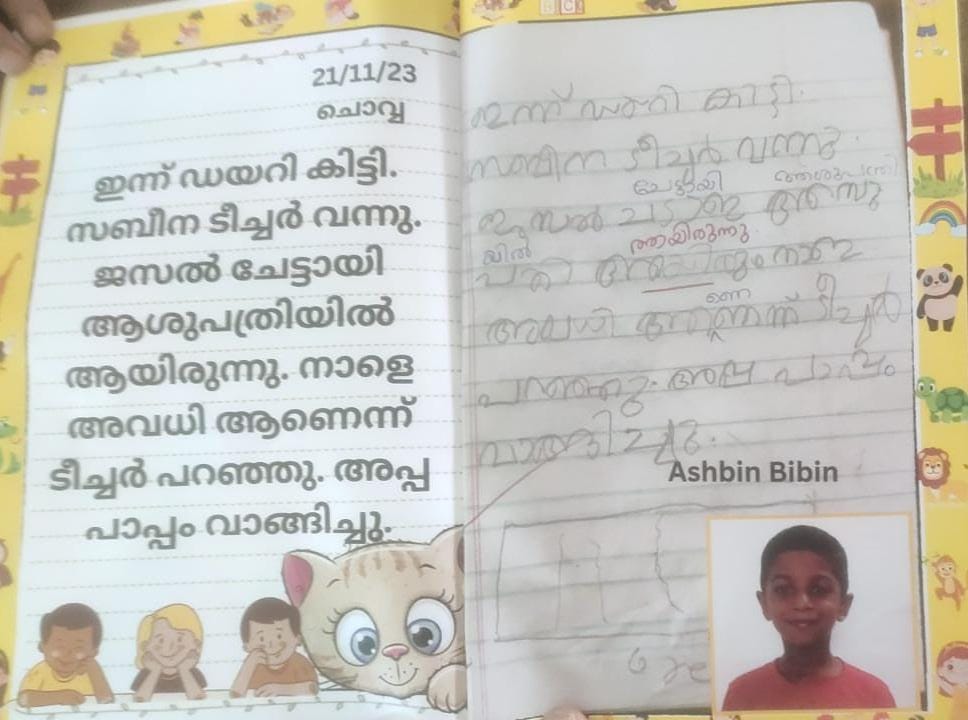 21/11/23
ചൊവ്വ
ഇന്ന് ഡയറി കിട്ടി.
സബീന ടീച്ചർ വന്നു.
ജസൽ ചേട്ടായി
ആശുപത്രിയിൽ
ആയിരുന്നു. നാളെ
അവധി ആണെന്ന്
ടീച്ചർ പറഞ്ഞു. അപ്പ
പാപ്പം വാങ്ങിച്ചു.
ഇന്ന് ഡയറി കിട്ടി.
സബീന ടീച്ചർ വന്നു.
ചേട്ടായി
യിൽ
ത്രായിരുന്നു
അവധി
ണെ
ടീച്ചർ
അപ്പ പാപ്പം
Ashbin Bibin